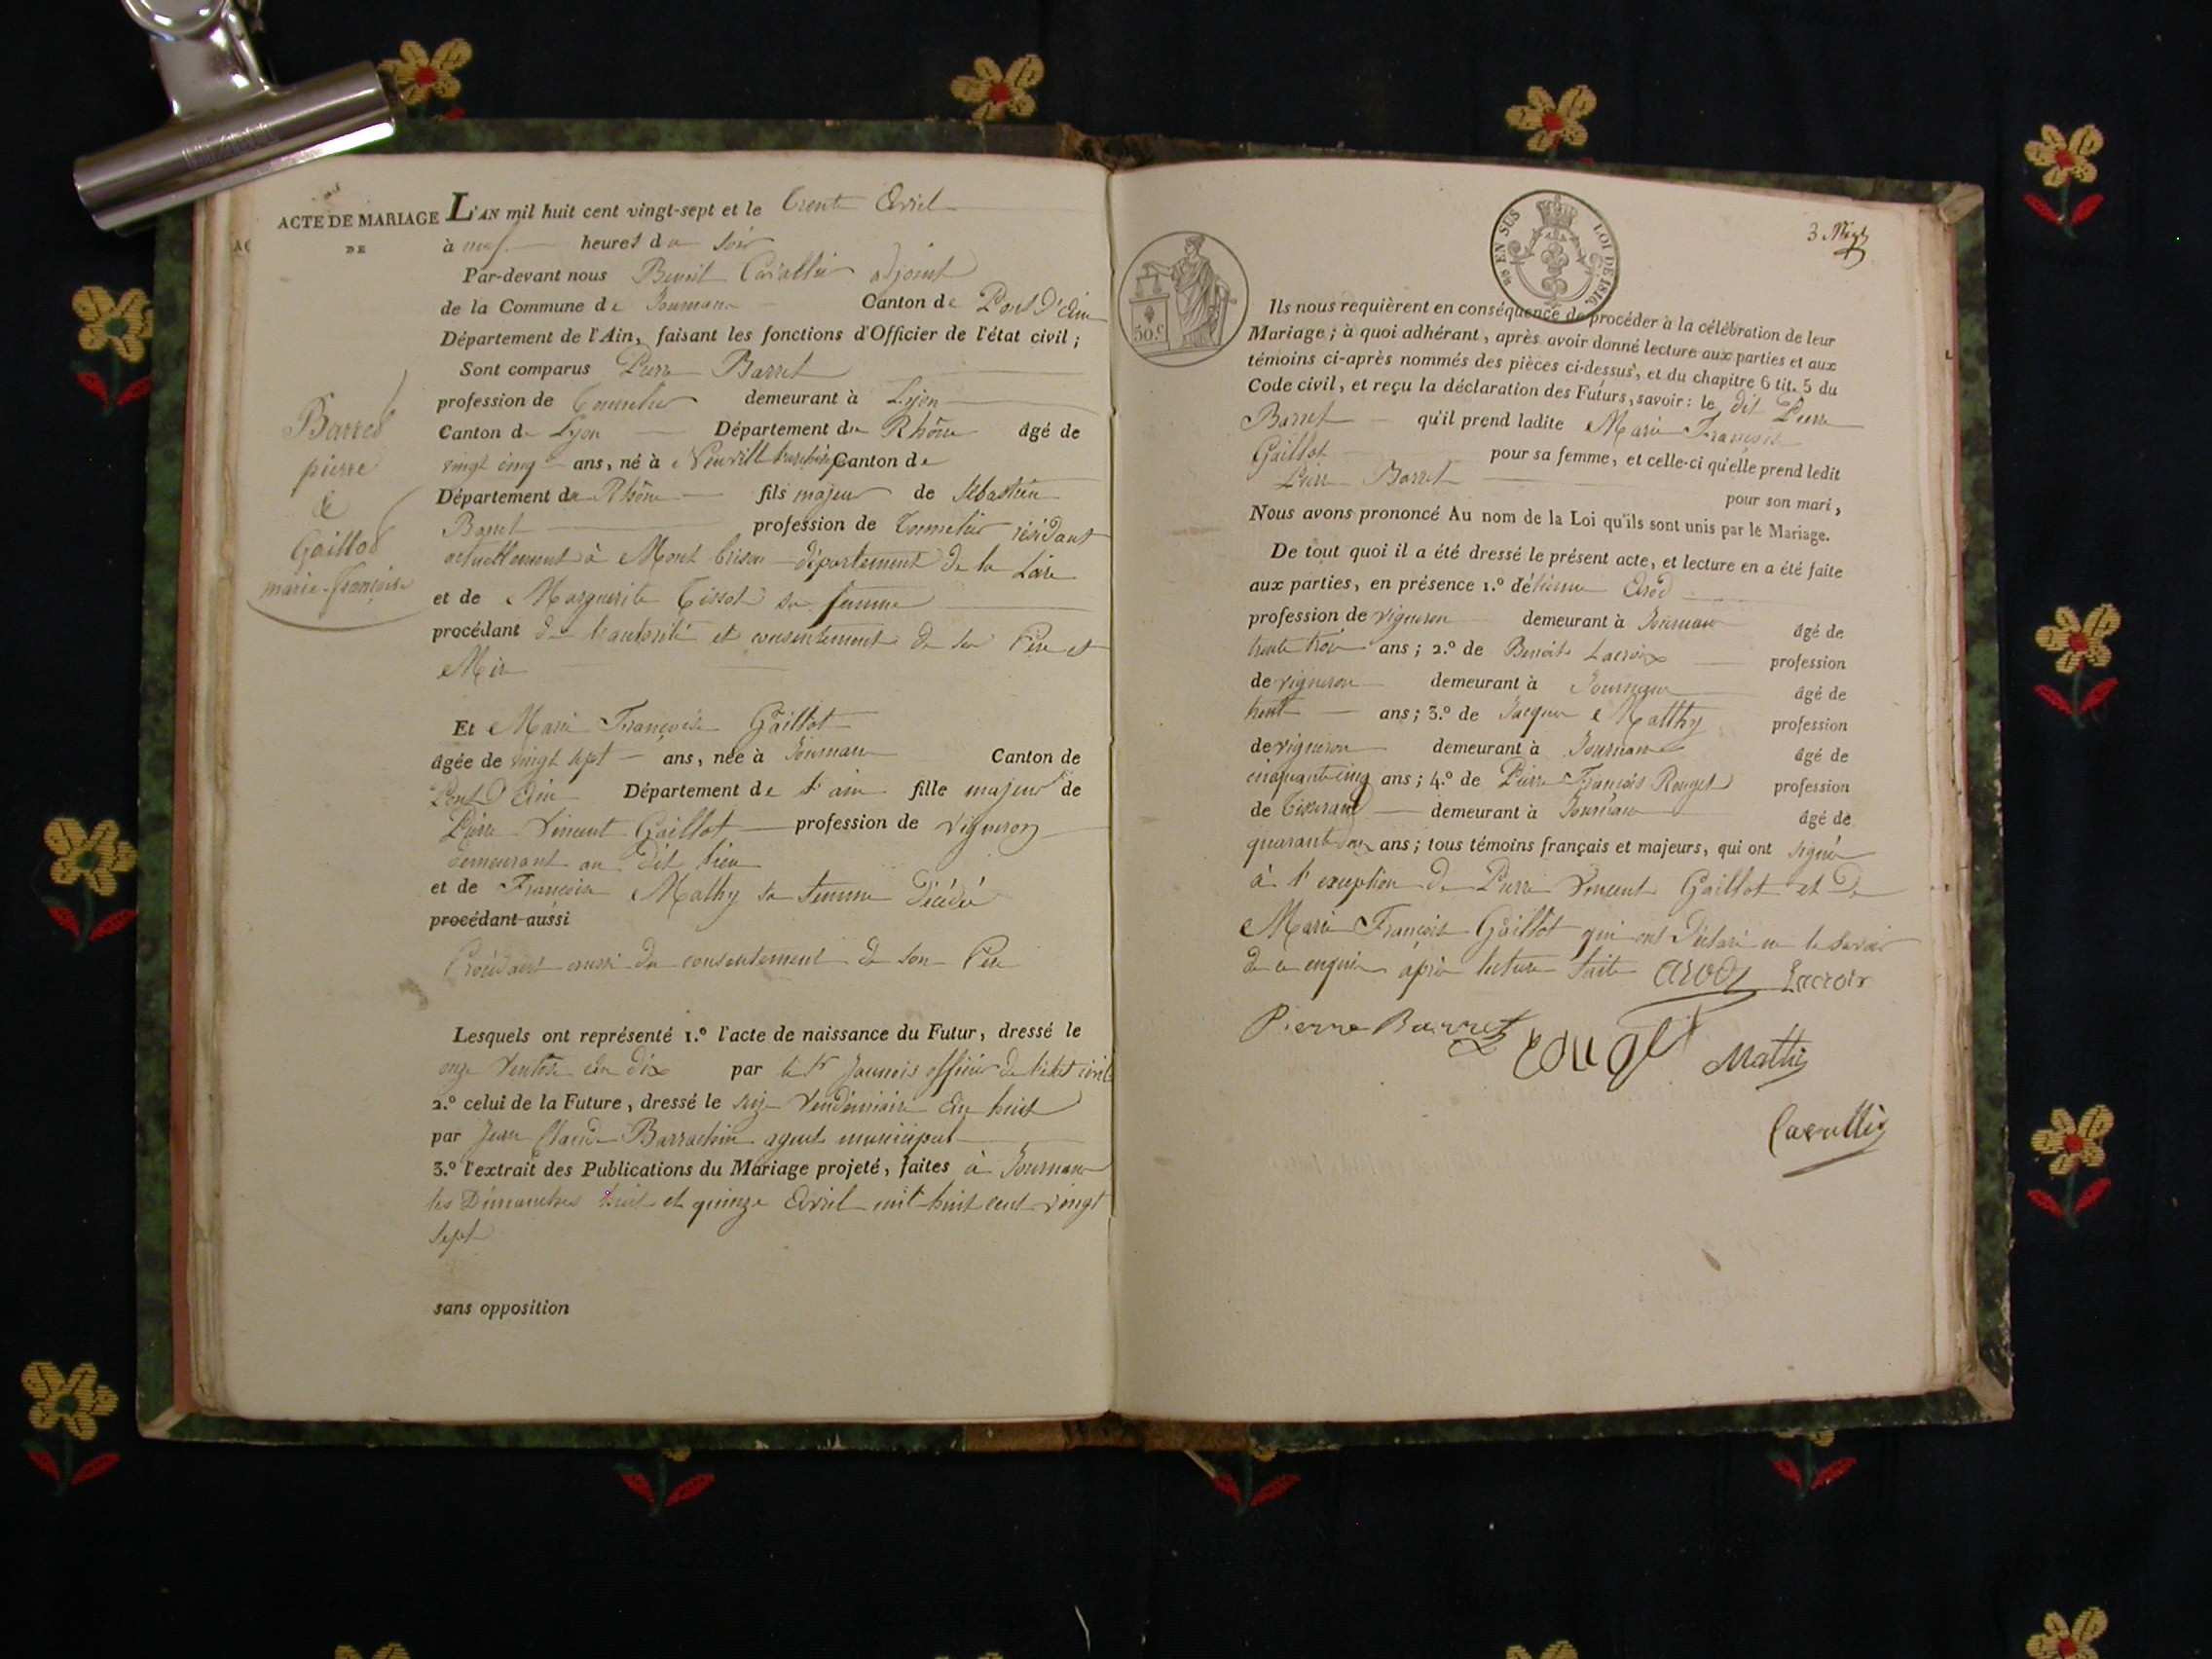 ACTE DE MARIAGE
DE
Barret
pierre
&
Gaillot
marie-françoise
L'AN mil huit cent vingt-sept et le trente Avril
à neuf heures du soir
Par-devant nous Benoit Cavallier adjoint
de la Commune de Journans Canton de Pont D'Ain
Département de l'Ain, faisant les fonctions d'Officier de l'état civil;
Sont comparus Pierre Barret
profession de Tonnelier demeurant à Lyon
Canton de Lyon Département du Rhône âgé de
vingt cinq ans, né à Neuville Canton de
Département du Rhône fils majeur de Sébastien
Barret profession de Tonnelier résidant
actuellement à Mont brison département de la Loire
et de Marguerite Tissot sa femme
procédant de l'autorité et consentement de ses Père et
Mère
Et Marie Françoise Gaillot
âgée de vingt sept ans, née à Journans Canton de
Pont D'Ain Département de l'ain fille majeur de
Pierre Vincent Gaillot profession de vigneron
demeurant au dit lieu
et de Françoise Mathy sa femme Décédée
procédant aussi
Procédant aussi du consentement de son Père
Lesquels ont représenté 1.º l'acte de naissance du Futur, dressé le
onze Ventose an dix par le Sr officier de l'état civil
2.º celui de la Future, dressé le seize Vendémiaire an huit
par Jean Claude agent municipal
3.º l'extrait des Publications du Mariage projeté, faites à Journans
les Dimanches huit et quinze Avril mil huit cent vingt
sept
sans opposition
50.c
EN SUS LOI DE 1816.
3
Ils nous requièrent en conséquence de procéder à la célébration de leur
Mariage; à quoi adhérant, après avoir donné lecture aux parties et aux
témoins ci-après nommés des pièces ci-dessus, et du chapitre 6 tit. 5 du
Code civil, et reçu la déclaration des Futurs, savoir: le dit Pierre
Barret qu'il prend ladite Marie Françoise
Gaillot pour sa femme, et celle-ci qu'elle prend ledit
Pierre Barret pour son mari,
Nous avons prononcé Au nom de la Loi qu'ils sont unis par le Mariage.
De tout quoi il a été dressé le présent acte, et lecture en a été faite
aux parties, en présence 1.º d'étienne Arod
profession de vigneron demeurant à Journans âgé de
trente trois ans; 2.º de Benoit Lacroix profession
de vigneron demeurant à Journans âgé de
trente ans; 3.º de Jacques Matthy profession
de vigneron demeurant à Journans âgé de
cinquante cinq ans; 4.º de Pierre François Rouget profession
de tisserand demeurant à Journans âgé de
quarante deux ans; tous témoins français et majeurs, qui ont signé
à l'exception de Pierre Vincent Gaillot et De
Marie François Gaillot qui ont Déclaré ne le savoir
de ce enquis après lecture faite Arod Lacroix
Pierre Barret Rouget Matthy
Cavallier